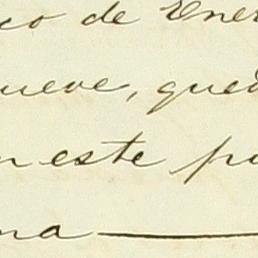 co de Ener
ueve, qued
n este pu
na